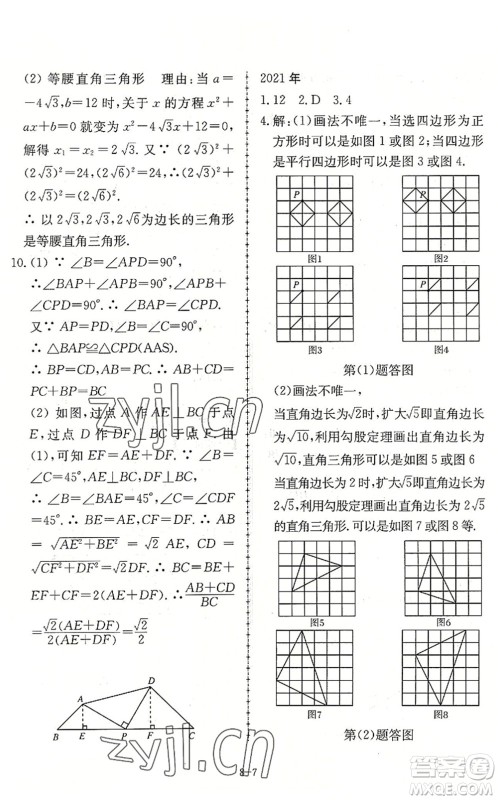 (2) 等腰直角三角形　理由:当 a=
-4√3,b=12 时,关于 x 的方程 x²+
ax+b=0 就变为 x²-4√3x+12=0.
解得 x₁=x₂=2√3. 又∵(2√3)²+
(2√3)²=24,(2√6)²=24,∴(2√3)²+
(2√3)²=(2√6)².
∴ 以 2√3,2√3,2√6为边长的三角形
是等腰直角三角形.
10. (1) ∵ ∠B=∠APD=90°,
∴∠BAP+∠APB=90°,∠APB+
∠CPD=90°. ∴∠BAP=∠CPD.
又∵ AP=PD,∠B=∠C=90°,
∴ △BAP≌△CPD(AAS).
∴ BP=CD,AB=PC. ∴ AB+CD=
BP+PC=BC
(2) 如图,过点 A 作 AE⊥BC 于点
E,过点 D 作 DF⊥BC 于点 F. 由
(1),可知 EF=AE+DF. ∵ ∠B=
∠C=45°,AE⊥BC,DF⊥BC,
∴ ∠B=∠BAE=45°,∠C=∠CDF
=45°. ∴ BE=AE,CF=DF,AB=
√(AE²+BE²)=√2 AE,CD=
√(CF²+DF²)=√2DF. ∴ BC=BE+
EF+CF=2(AE+DF). ∴ (AB+CD)/BC
=√2(AE+DF)/2(AE+DF)=√2/2
A
D
B
E
P
F
C
2021 年
1. 12　2. D　3. 4
4. 解:(1)画法不唯一,当选四边形为正
方形时可以是如图 1 或图 2;当四边形
是平行四边形时可以是图 3 或图 4.
P
图1
P
图2
P
图3
P
图4
第(1)题答图
(2)画法不唯一,
当直角边长为√2时,扩大√5即直角边长
为√10,利用勾股定理画出直角边长为
√10,直角三角形可以是如图 5 或图 6
当直角边长为 2 时,扩大√5即直角边长
为 2√5,利用勾股定理画出直角边长为 2√5
的直角三角形.可以是如图 7 或图 8 等.
图5
图6
图7
图8
第(2)题答图
8-7
zyjl.cn
zyjl.cn
作业帮
MXQE.COM